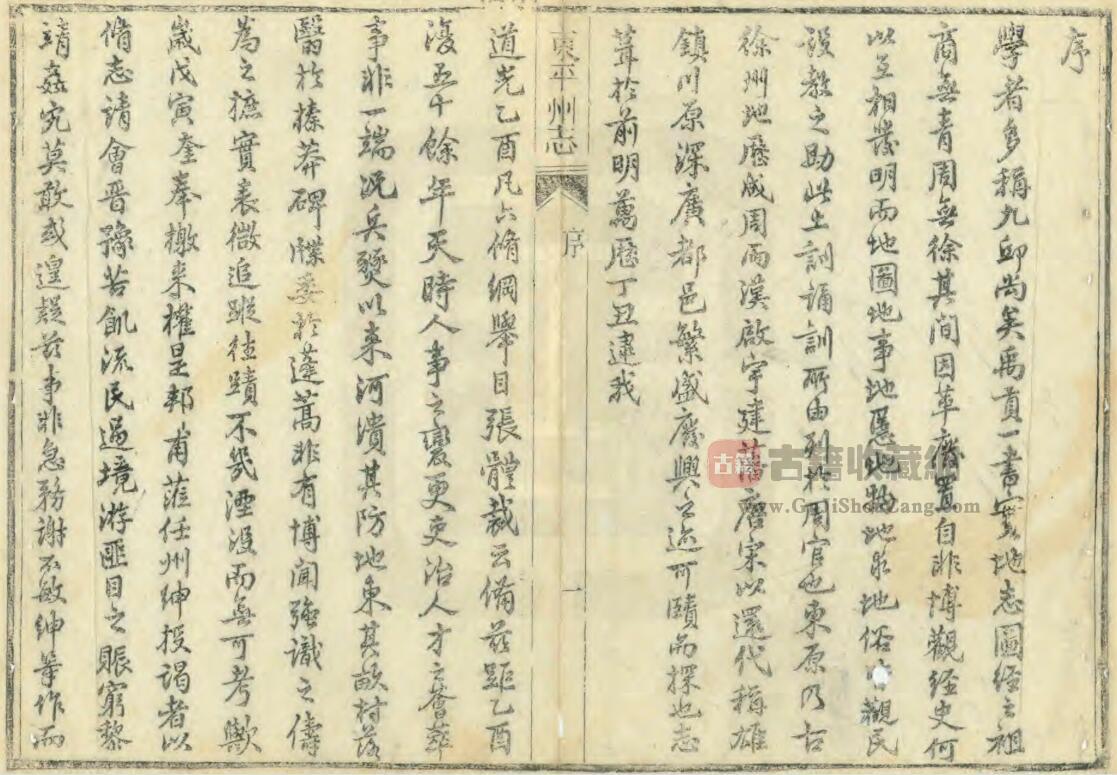 序
學者多稱九邱尚矣禹貢一書實地志圖經之祖
商無青周無徐其間因革廢置自非博觀經史何
以互相發明而地圖地事地慝地物地求地俗觀民
設教之助此土訓誦訓所由列於周官也東原乃古
徐州地歷成周兩漢啟宇建藩唐宋以還代稱雄
鎮川原深廣都邑繁盛廢興之迹可賾而探也志
葺於前明萬歷丁丑逮我
東平州志 序 一
道光乙酉凡六脩綱舉目張體裁云備茲距乙酉
復五十餘年天時人事之變更吏治人才之薈萃
事非一端況兵燹以來河潰其防地東其畝村落
翳於榛莽碑牒委於蓬蒿非有博聞強識之儔
為之摭實表微追蹤往蹟不幾湮沒而無可考歟
歲戊寅奎奉檄來權是邦甫蒞任州紳授謁者以
脩志請會晉豫苦飢流民過境游匪目之賑窮黎
靖姦宄莫敢或遑疑茲事非急務謝不敏紳等作而
古籍 古籍收藏網
www.GuJiShouCang.com